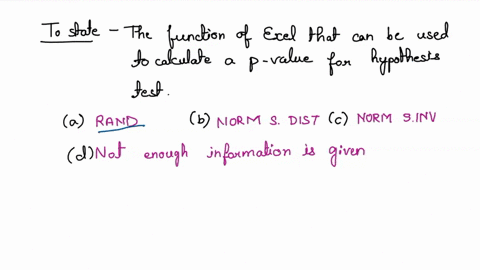 To state - The function of Excel that can be used
to calculate a p-value for hypothesis
test.
(a) RAND (b) NORM S. DIST (c) NORM S.INV
(d) Not enough information is given